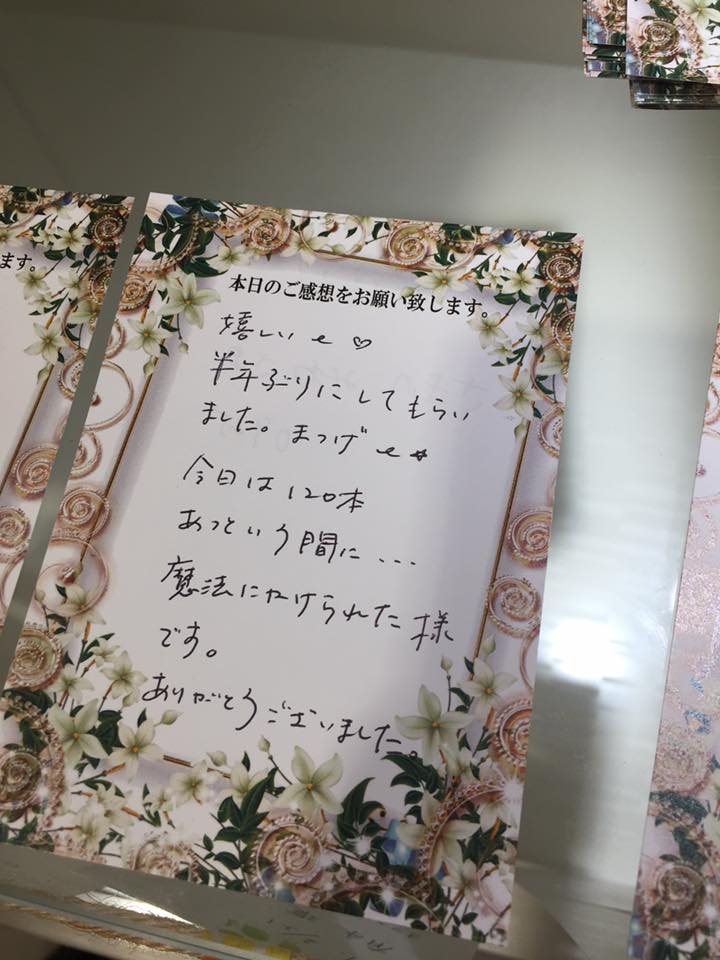 ます。
本日のご感想をお願い致します。
嬉しい～♡
半年ぶりにしてもらい
ました。まつげ～☆
今日は120本
あっという間に...
魔法にかけられた様
です。
ありがとうございました。